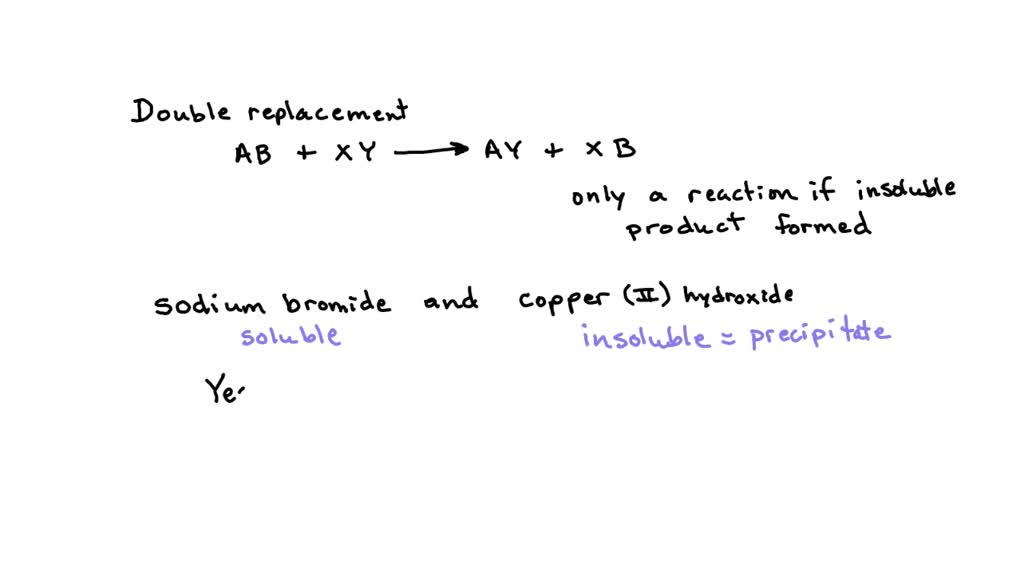 Double replacement
AB + XY → AY + XB
only a reaction if insoluble
product formed
sodium bromide and copper (II) hydroxide
soluble insoluble = precipitate
Ye